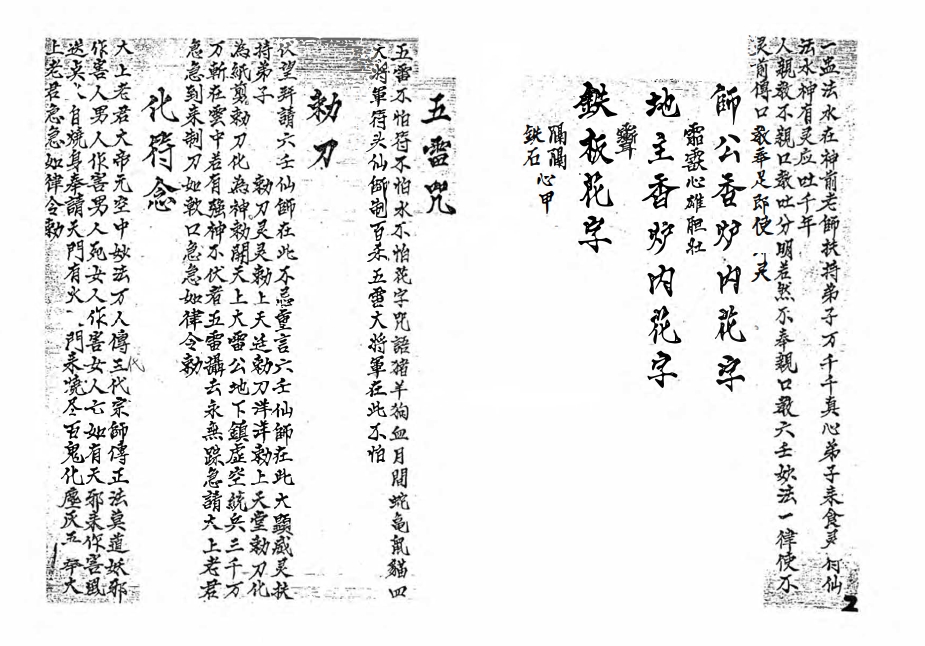 一盅法水在神前老師扶持弟子万千千真心弟子来食灵何仙
法水神有灵应吐千年
人親教不親口教吐分明若然不奉親口教六壬妙法一律使不
灵前傳口教華足即使灵
師公香炉内花字
心雄胆壯
地主香炉内花字
鉄板花字
隔隔心甲
鉄石
2
五雷咒
五雷不怕符不怕水不怕花字咒語猪羊狗血月間蛇龟鼠貓四
大将軍符头仙師制百杀五雷大将軍在此不怕
勅刀
伏望拜請六壬仙師在此不忌重言六壬仙師在此大顕威灵扶
持弟子 勅刀灵灵勅上天廷勅刀洋洋勅上天堂勅刀化
為紙剪勅刀化為神勅開天上大雷公地下鎮虚空統兵三千万
万斬在雲中若有強神不伏者五雷攝去永無踪急請大上老君
急急到来制刀如敕口急急如律令勅
化符念
大上老君大帝元空中妙法万人傳三代宗師傳正法莫道妖邪
代
作害人男人作害男人死女人作害女人亡如有天邪来作害
送真火自燒身奉請天門有火 門来燒尽百鬼化塵灰五 大
上老君急急如律令勅